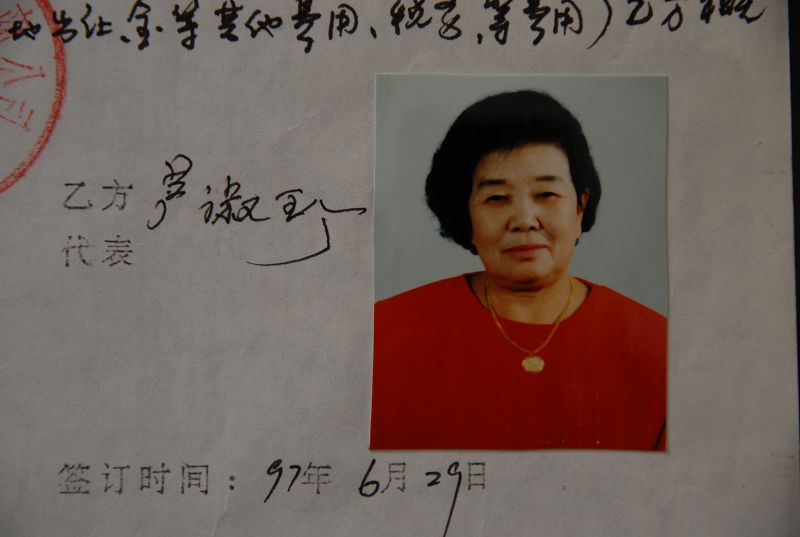 地出让金等其他费用、税金等费用)乙方概
公司
乙方 罗淑珍
代表
签订时间: 97年 6月 29日